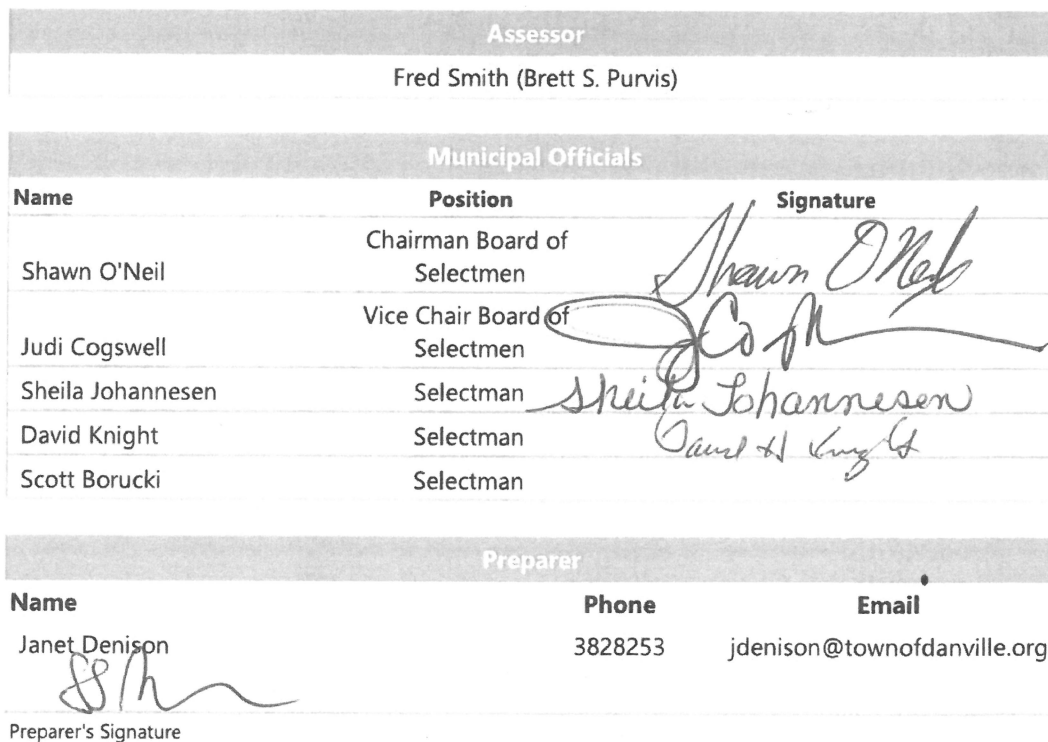 Assessor
Fred Smith (Brett S. Purvis)
Municipal Officials
Name Position Signature
Shawn O'Neil Chairman Board of Selectmen Shawn O'Neil
Judi Cogswell Vice Chair Board of Selectmen
Sheila Johannesen Selectman Sheila Johannesen
David Knight Selectman David H Knight
Scott Borucki Selectman
Preparer
Name Phone Email
Janet Denison 3828253 jdenison@townofdanville.org
Preparer's Signature